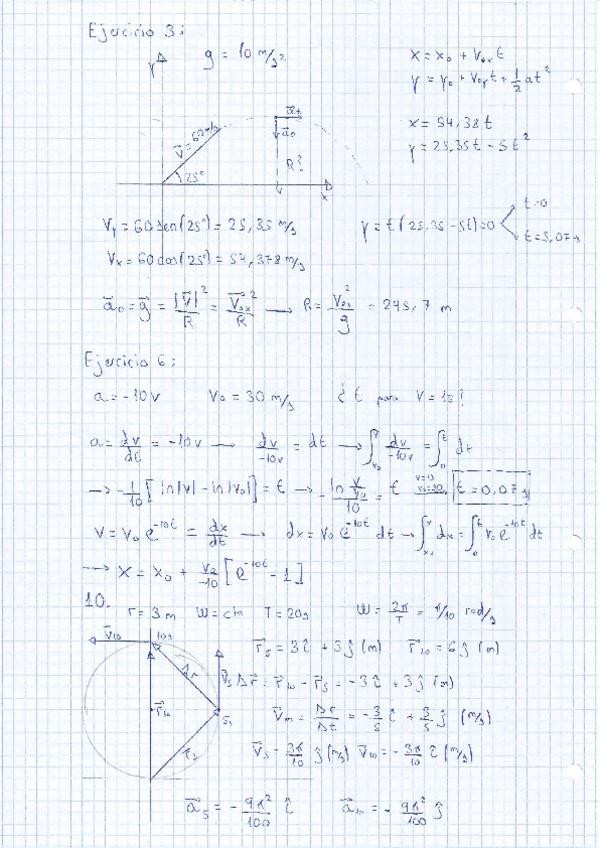 Ejercicio 3:
g = 10 m/s²
x = x₀ + v₀ₓt
y = y₀ + v₀ᵧt + 1/2 at²
x = 54,38t
y = 25,35t - 5t²
Y
V = 60 m/s
25°
R?
x
Vᵧ = 60 sen(25°) = 25,35 m/s
y = t(25,35 - 5t) = 0
t=0
t=5,07s
Vₓ = 60 cos(25°) = 54,378 m/s
a⃗ₙ = g⃗ = |V⃗|²/R = V⃗₀ₓ²/R → R = V₀ₓ²/g = 295,7 m
Ejercicio 6:
a = -10v V₀ = 30 m/s ¿ t para V = 15?
a = dv/dt = -10v → dv/-10v = dt → ∫ᵥ₀ᵛ dv/-10v = ∫₀ᵗ dt
→ -1/10 [ln|v| - ln|v₀|] = t → - ln v/v₀ /10 = t V=15 V₀=30 t = 0,07s
V = V₀ e⁻¹⁰ᵗ = dx/dt → dx = V₀ e⁻¹⁰ᵗ dt → ∫ₓ₀ˣ dx = ∫₀ᵗ V₀ e⁻¹⁰ᵗ dt
→ x = x₀ + V₀/-10 [e⁻¹⁰ᵗ - 1]
10.
r = 3 m W = cte T = 20s W = 2π/T = π/10 rad/s
V⃗₁₀
10s
r⃗₅ = 3î + 3ĵ (m) r⃗₁₀ = 6ĵ (m)
Δr
V⃗₅
Δr⃗ = r⃗₁₀ - r⃗₅ = -3î + 3ĵ (m)
r⃗₁₀
5s
V⃗ₘ = Δr/Δt = -3/5 î + 3/5 ĵ (m/s)
r⃗₅
V⃗₅ = 3π/10 ĵ (m/s) V⃗₁₀ = -3π/10 î (m/s)
a⃗₅ = - 9π²/100 î a⃗₁₀ = - 9π²/100 ĵ